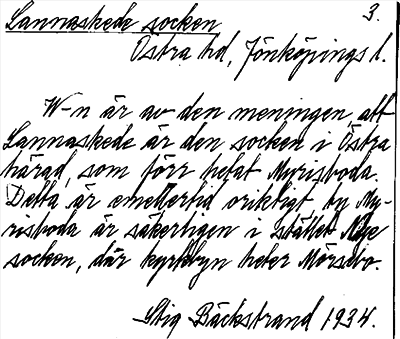 Lannaskede socken 3.
Östra hd, Jönköpings l.
W-n är av den meningen, att
Lannaskede är den socken i Östra
härad, som förr hetat Myrisboda.
Detta är emellertid oriktigt, ty My-
risboda är säkerligen i stället Nye
socken, där kyrkbyn heter Mörsebo.
Stig Bäckstrand 1934.